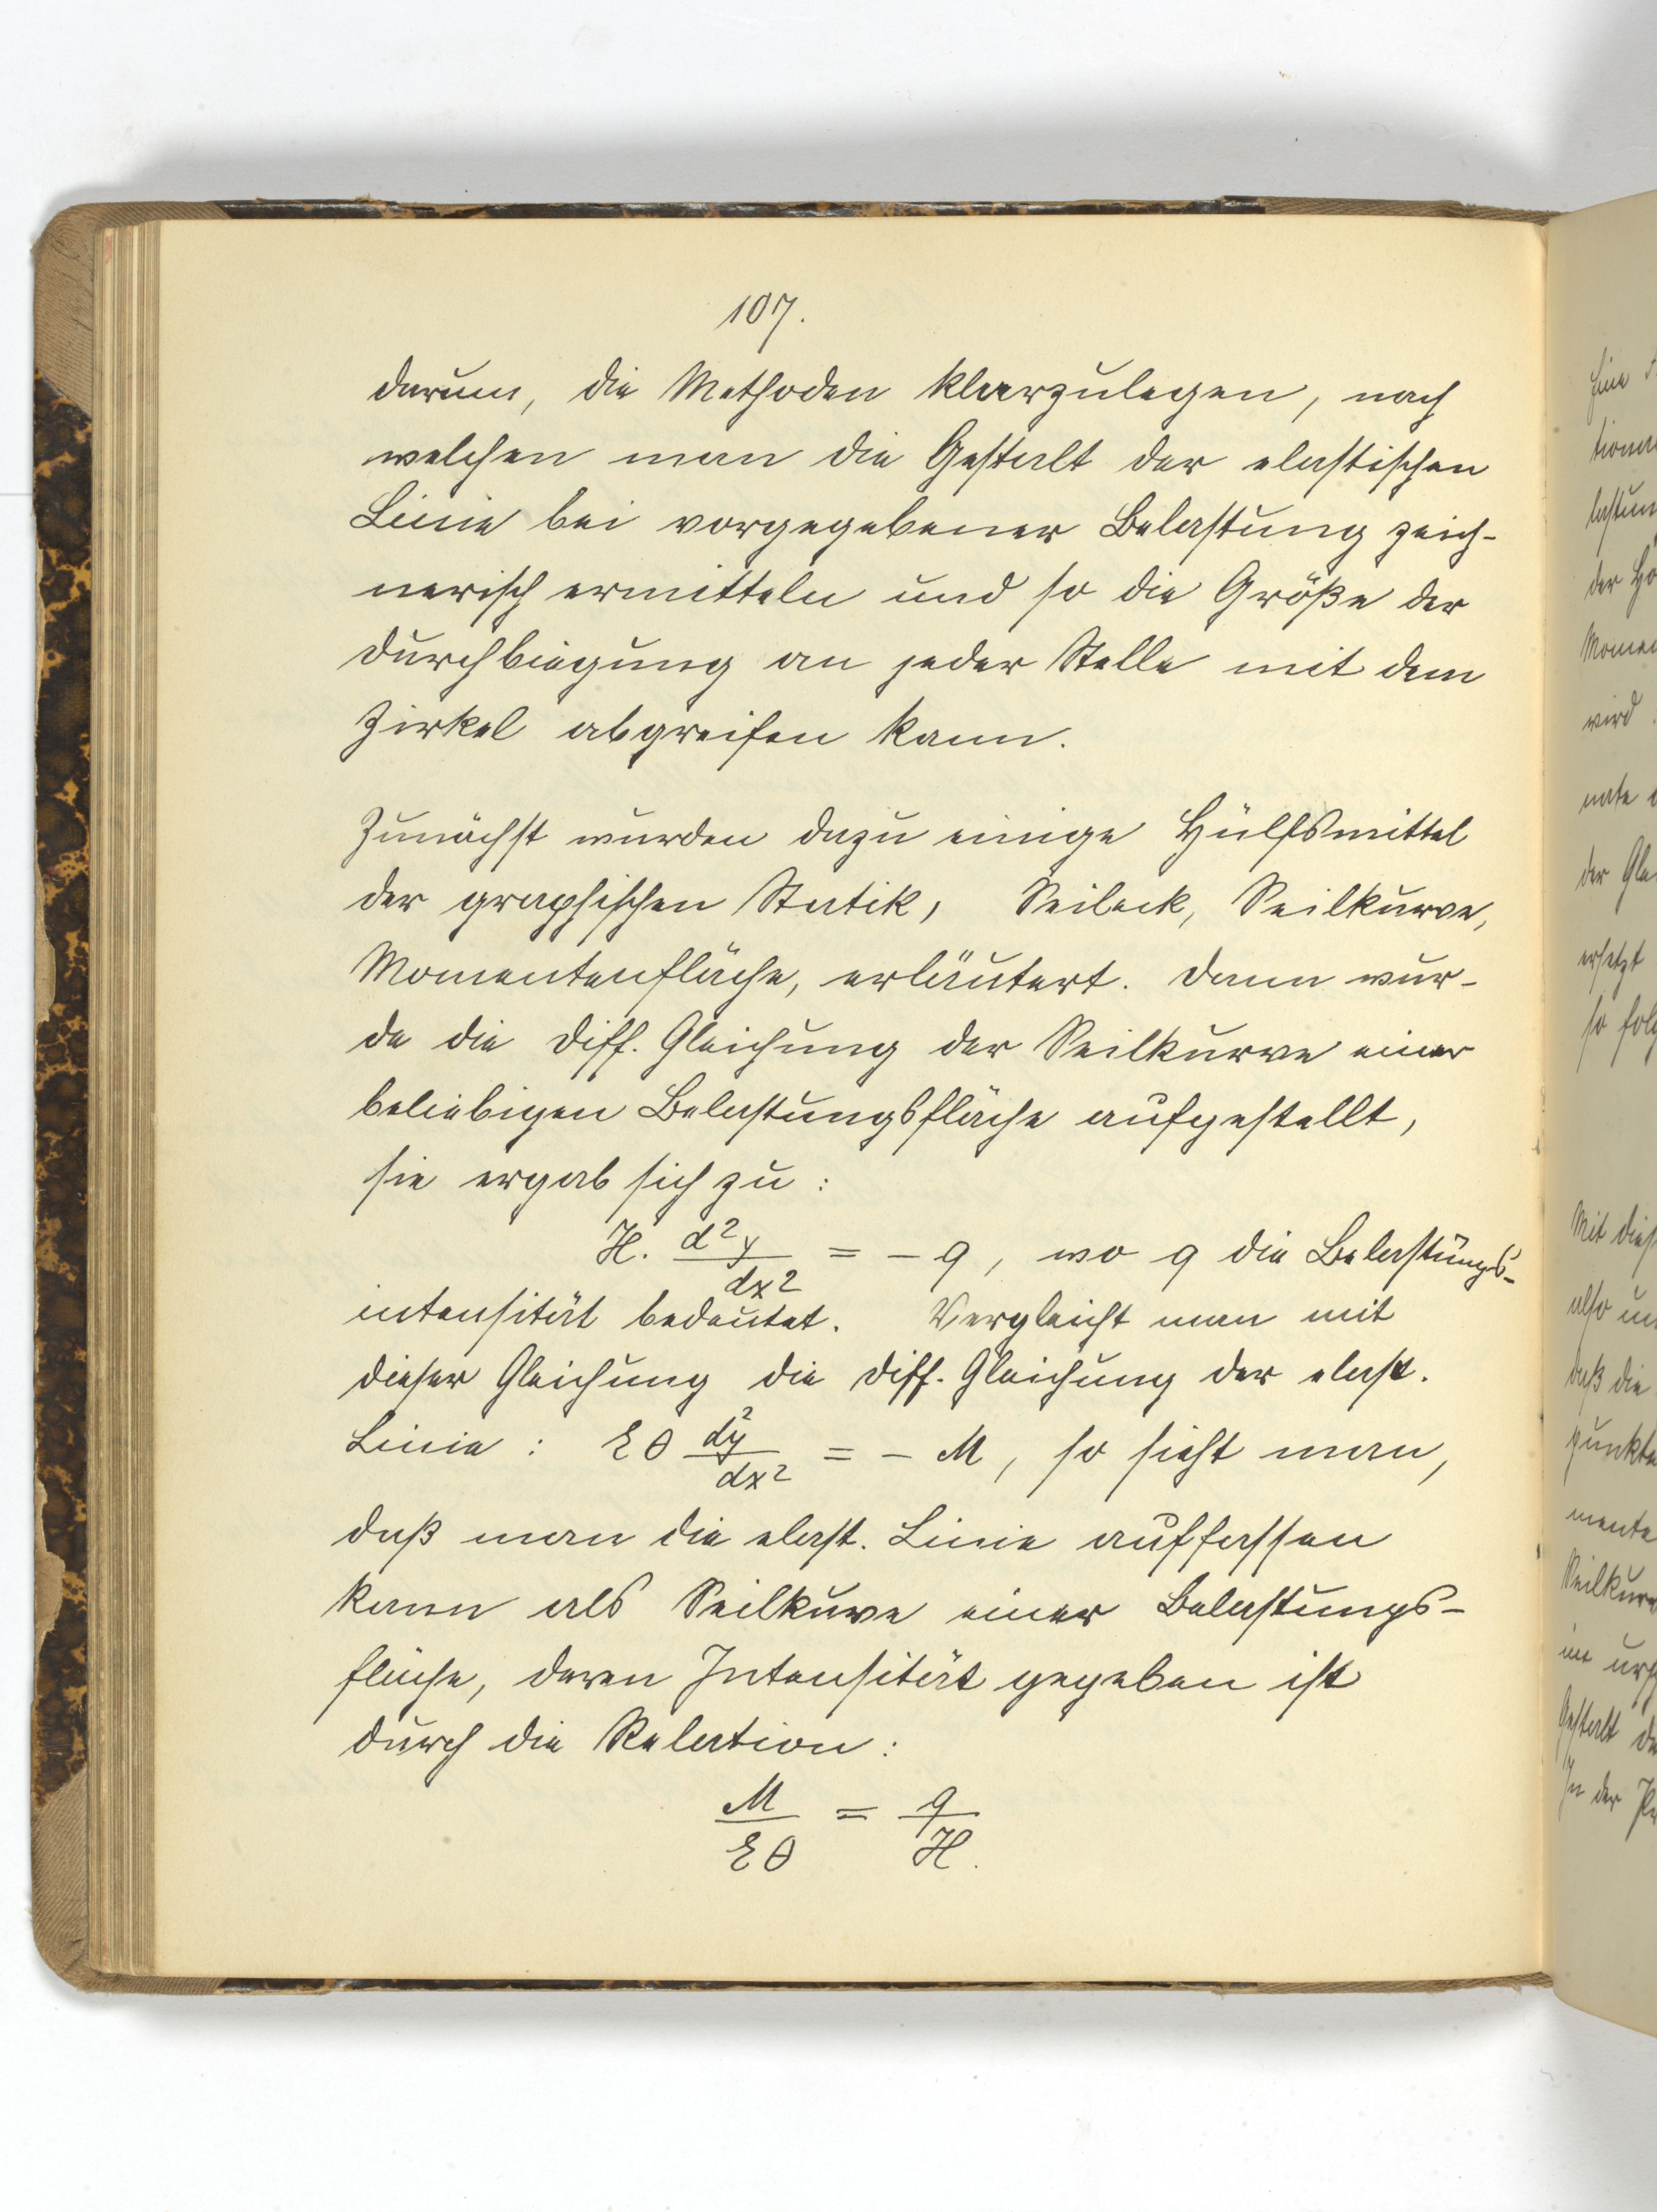 107.
darum, die Methoden klarzulegen, nach
welchen man die Gestalt der elastischen
Linie bei vorgegebener Belastung zeich-
nerisch ermitteln und so die Größe der
Durchbiegung an jeder Stelle mit dem
Zirkel abgreifen kann.
Zunächst wurden dazu einige Hülfsmittel
der graphischen Statik, Seileck, Seilkurve,
Momentenfläche, erläutert. Dann wur-
de die Diff. Gleichung der Seilkurve einer
beliebigen Belastungsfläche aufgestellt,
sie ergab sich zu:
H. d²y/dx² = - q, wo q die Belastungs-
intensität bedeutet. Vergleicht man mit
dieser Gleichung die Diff. Gleichung der elast.
Linie: Eθ d²y/dx² = - M, so sieht man,
daß man die elast. Linie auffassen
kann als Seilkurve einer Belastungs-
fläche, deren Intensität gegeben ist
durch die Relation:
M/Eθ = q/H.
Eine
der
Momen
wird
der Gle
ersetzt
so folg
Mit dies
also
daß die
punkte
mente
Seilkurv
Gestalt
In der